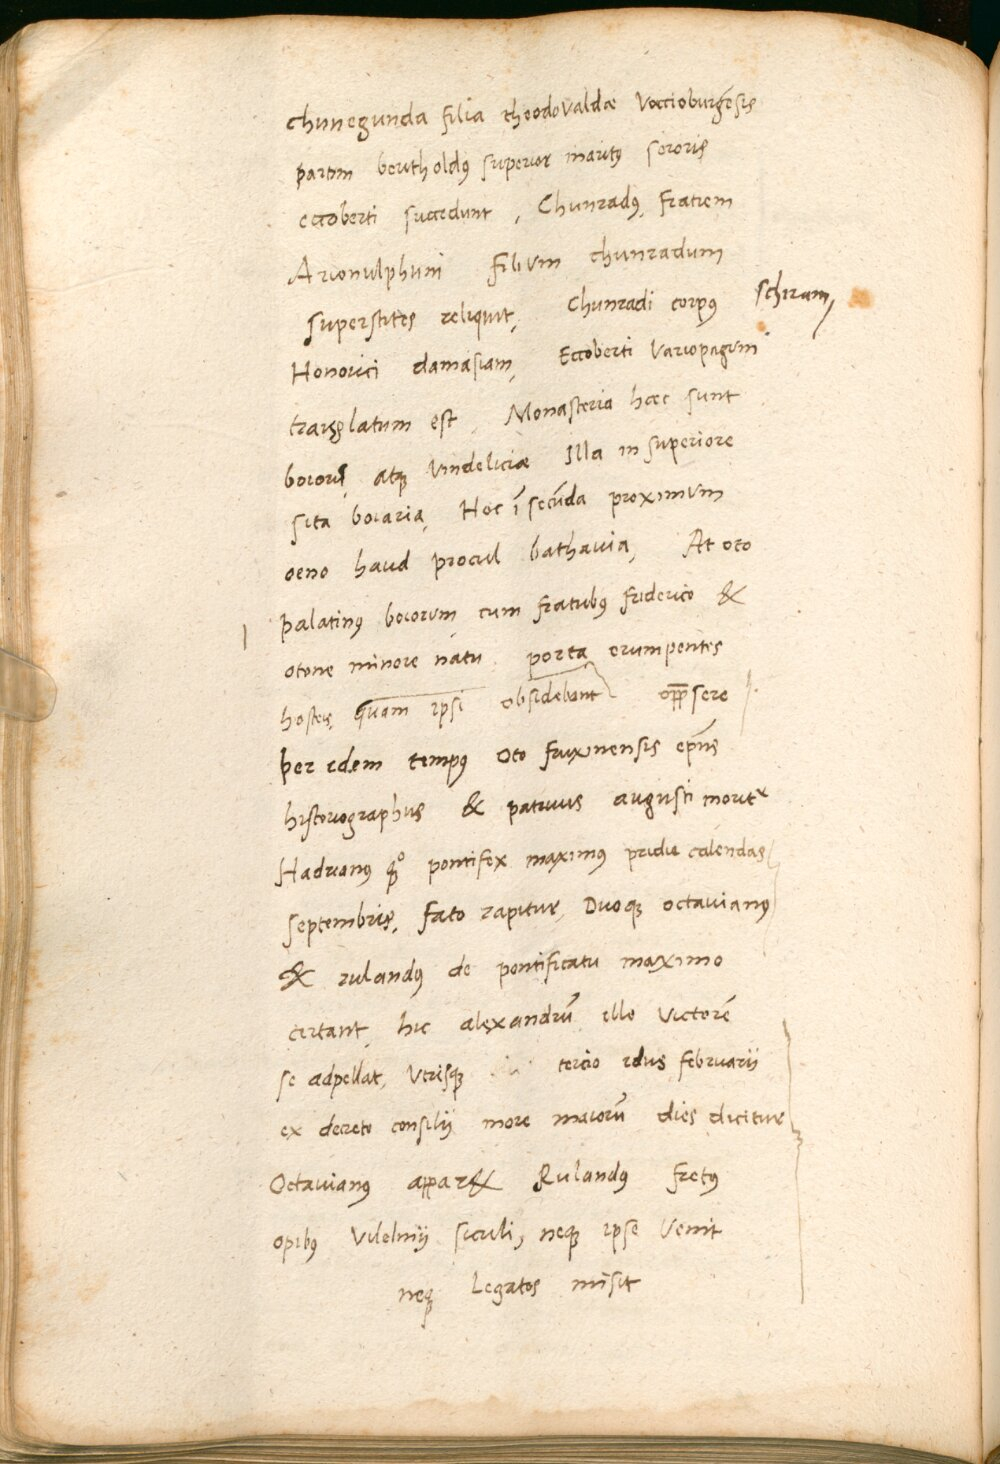 chunegunda filia theodovaldæ Voccioburgēsis
partim bertholdꝰ superior maritꝰ sororis
eccoberti succedunt, Chunradꝰ, fratrem
Arionulphum filium chunradum
superstites reliquit, Chunradi corpꝰ schirum,
Honorici damasiam, Eccoberti Variopagum
translatum est, Monasteria hæc sunt
boiorum atqꝫ Vindeliciæ Illa in superiore
sita boiaria, Hoc ī secūda proximum
oeno haud procul bathavia, At oto
palatinꝰ boiorum cum fratribꝰ friderico &
otone minore natu porta erumpentes
hostes, quam ipsi obsidebant opp̄sere
per idem tempꝰ Oto fruxinensis ep̄us
historiographus & patruus augusti moritꝛ
Hadrianꝰ qꝫo pontifex maximꝰ pridie calendas
septembris, fato rapitur, Duoqꝫ octavianꝰ
& rulandꝰ de pontificatu maximo
certant, hic alexandrū ille Victorē
se adpellat, Vtrisqꝫ tercio idus februarii
ex decreto consilii more maiorū dies dicitur
Octavianꝰ appar& Rulandꝰ fretꝰ
opibꝰ Vilelmii siculi, neqꝫ ipse Venit
neqꝫ Legatos misit